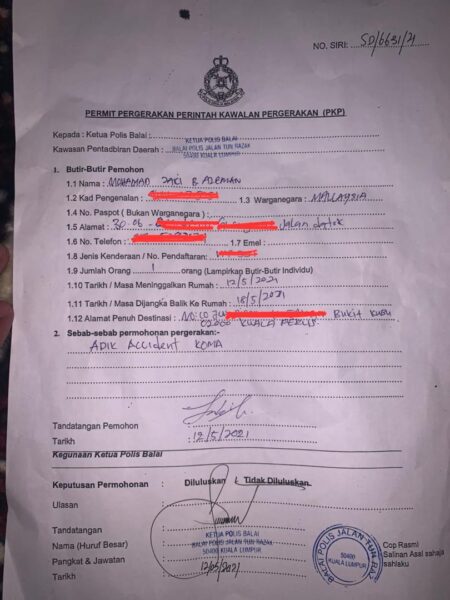 NO. SIRI: SD/6631/21
PERMIT PERGERAKAN PERINTAH KAWALAN PERGERAKAN (PKP)
Kepada : Ketua Polis Balai : KETUA POLIS BALAI
Kawasan Pentadbiran Daerah : BALAI POLIS JALAN TUN RAZAK
50400 KUALA LUMPUR
1. Butir-Butir Pemohon
1.1 Nama : MOHAMAD ZAKI B
1.2 Kad Pengenalan : 1.3 Warganegara : MALAYSIA
1.4 No. Paspot ( Bukan Warganegara ) :
1.5 Alamat : 30-06- Jalan
1.6 No. Telefon : 1.7 Emel :
1.8 Jenis Kenderaan / No. Pendaftaran :
1.9 Jumlah Orang 1 orang (Lampirkan Butir-Butir Individu)
1.10 Tarikh / Masa Meninggalkan Rumah : 12/5/2021
1.11 Tarikh / Masa Dijangka Balik Ke Rumah : 18/5/2021
1.12 Alamat Penuh Destinasi : Bukit
02000 KUALA PERLIS
2. Sebab-sebab permohonan pergerakan:-
ADIK ACCIDENT KOMA
Tandatangan Pemohon :
Tarikh : 12/5/2021
Kegunaan Ketua Polis Balai
Keputusan Permohonan : Diluluskan / Tidak Diluluskan
Ulasan :
Tandatangan :
Nama (Huruf Besar) : KETUA POLIS BALAI
BALAI POLIS JALAN TUN RAZAK
Pangkat & Jawatan : 50400 KUALA LUMPUR
Tarikh : 12/05/2021
BALAI POLIS JALAN TUN RAZ
50400
KUALA LUMPUR
Cop Rasmi
Salinan Asal sahaja
sahlaku